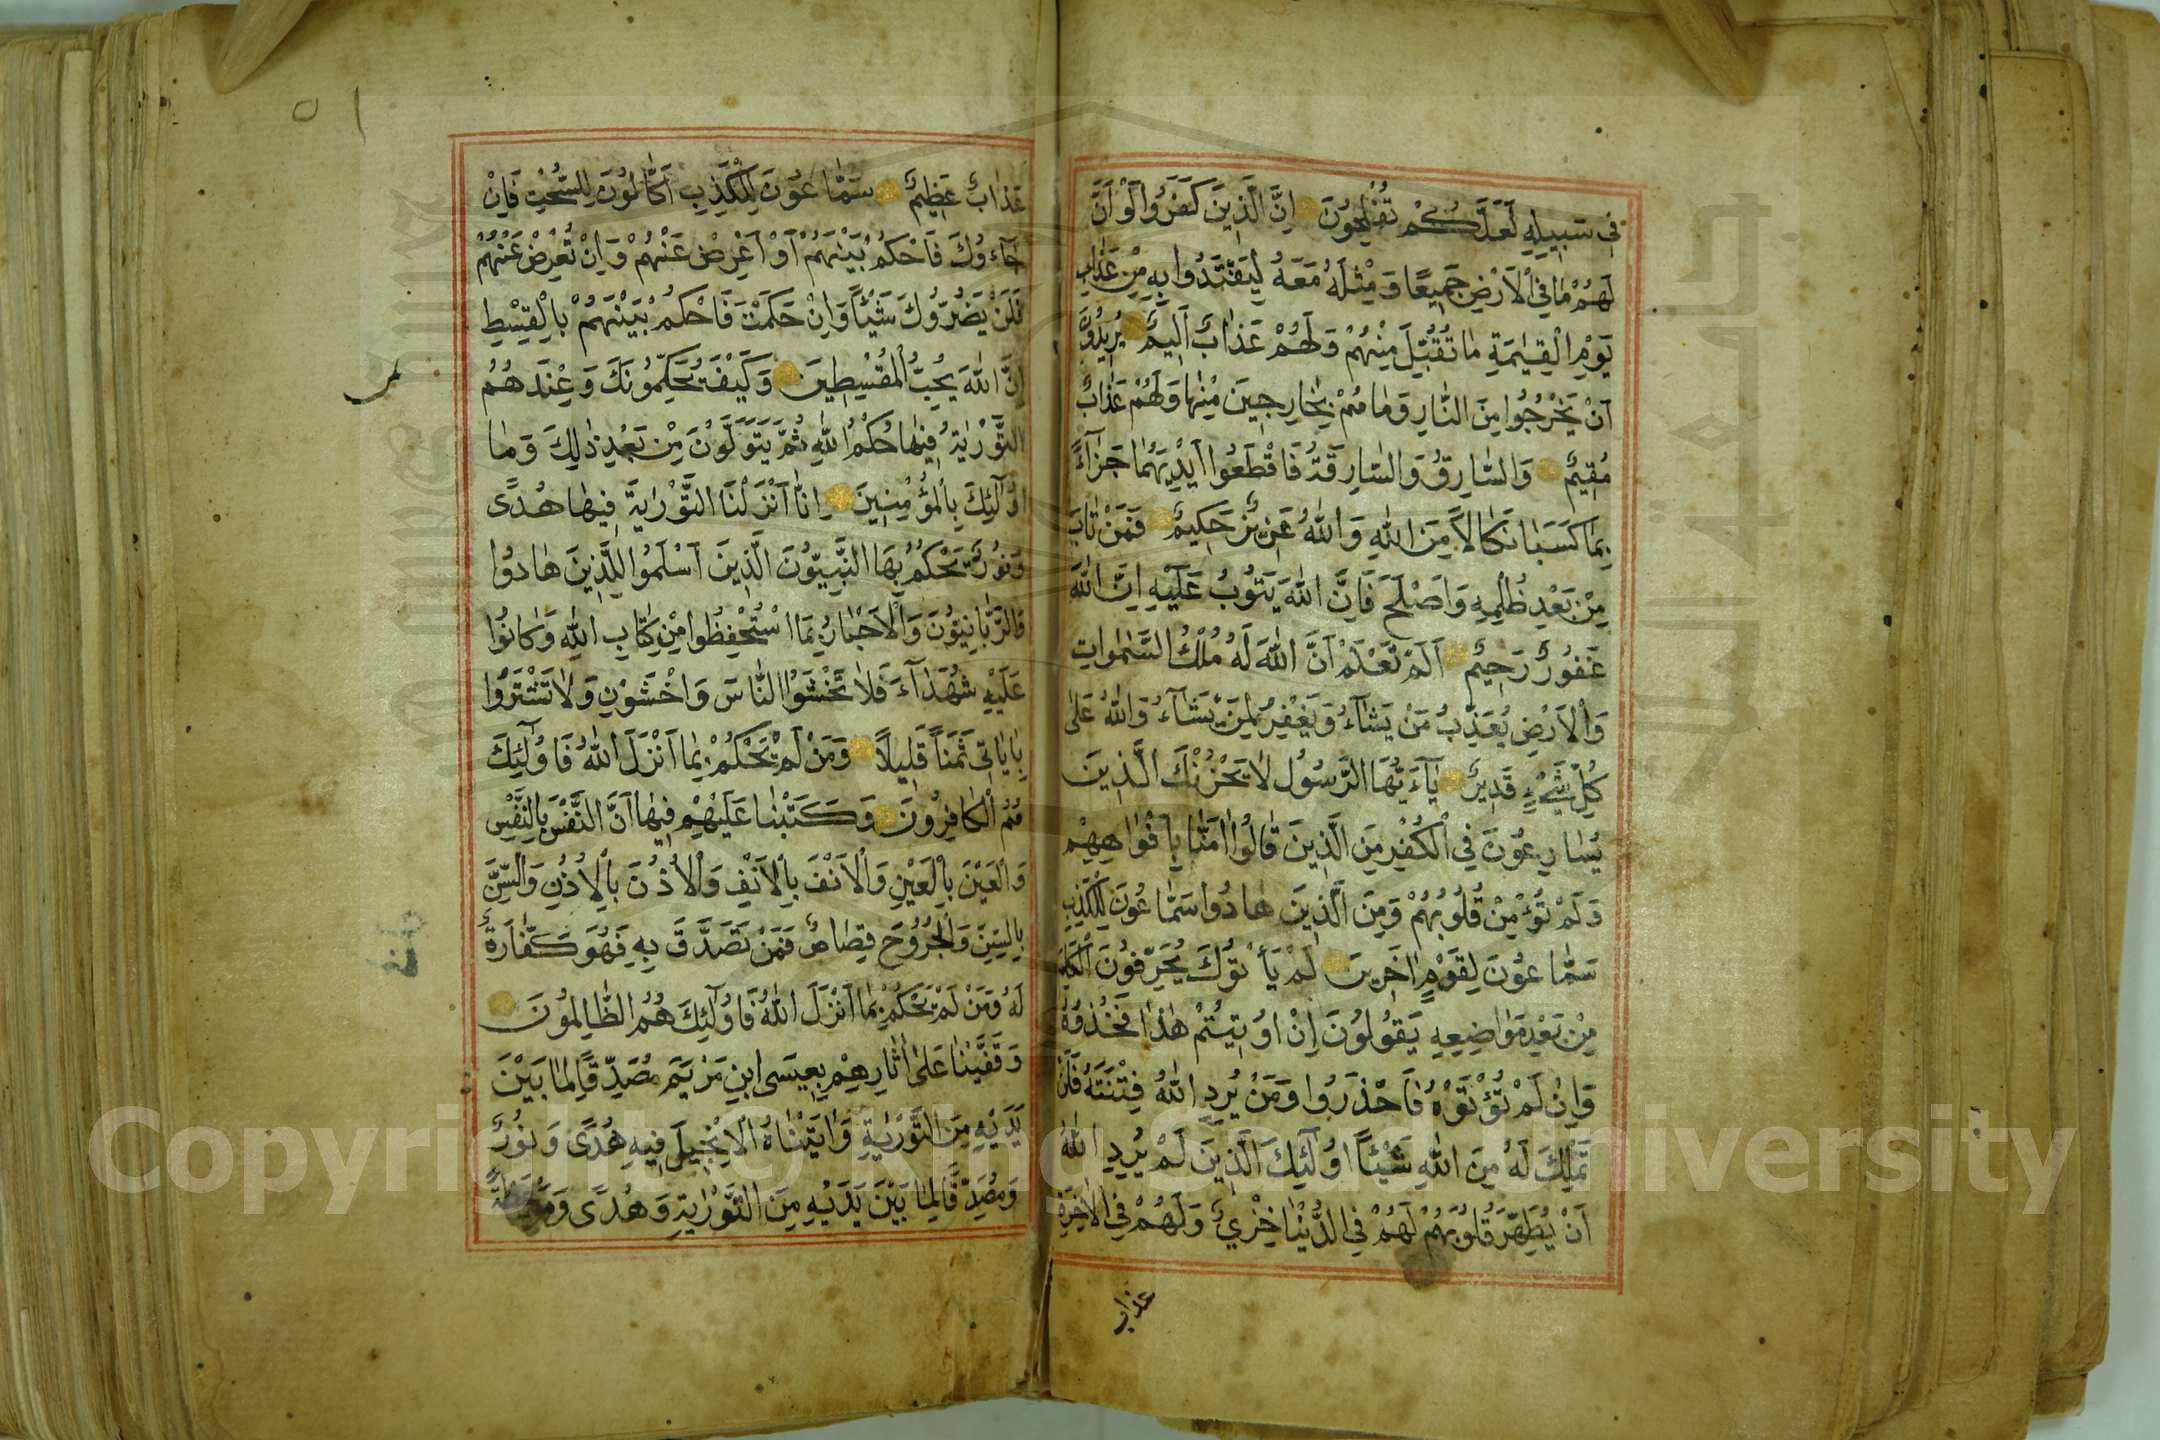 فِي سَبِيلِهِ لَعَلَّكُمْ تُفْلِحُونَ اِنَّ الَّذِينَ كَفَرُوا لَوْ اَنَّ
لَهُمْ مَا فِي الْاَرْضِ جَمِيعًا وَمِثْلَهُ مَعَهُ لِيَفْتَدُوا بِهِ مِنْ عَذَابِ
يَوْمِ الْقِيٰمَةِ مَا تُقُبِّلَ مِنْهُمْ وَلَهُمْ عَذَابٌ اَلِيمٌ يُرِيدُونَ
اَنْ يَخْرُجُوا مِنَ النَّارِ وَمَا هُمْ بِخَارِجِينَ مِنْهَا وَلَهُمْ عَذَابٌ
مُقِيمٌ وَالسَّارِقُ وَالسَّارِقَةُ فَاقْطَعُوا اَيْدِيَهُمَا جَزَآءً
بِمَا كَسَبَا نَكَالًا مِنَ اللّٰهِ وَاللّٰهُ عَزِيزٌ حَكِيمٌ فَمَنْ تَابَ
مِنْ بَعْدِ ظُلْمِهِ وَاَصْلَحَ فَاِنَّ اللّٰهَ يَتُوبُ عَلَيْهِ اِنَّ اللّٰهَ
غَفُورٌ رَحِيمٌ اَلَمْ تَعْلَمْ اَنَّ اللّٰهَ لَهُ مُلْكُ السَّمٰوَاتِ
وَالْاَرْضِ يُعَذِّبُ مَنْ يَشَآءُ وَيَغْفِرُ لِمَنْ يَشَآءُ وَاللّٰهُ عَلٰى
كُلِّ شَيْءٍ قَدِيرٌ يَآءَيُّهَا الرَّسُولُ لَا يَحْزُنْكَ الَّذِينَ
يُسَارِعُونَ فِي الْكُفْرِ مِنَ الَّذِينَ قَالُوا اٰمَنَّا بِاَفْوَاهِهِمْ
وَلَمْ تُؤْمِنْ قُلُوبُهُمْ وَمِنَ الَّذِينَ هَادُوا سَمَّاعُونَ لِلْكَذِبِ
سَمَّاعُونَ لِقَوْمٍ اٰخَرِينَ لَمْ يَأْتُوكَ يُحَرِّفُونَ الْكَلِمَ
مِنْ بَعْدِ مَوَاضِعِهِ يَقُولُونَ اِنْ اُوتِيتُمْ هٰذَا فَخُذُوهُ
وَاِنْ لَمْ تُؤْتَوْهُ فَاحْذَرُوا وَمَنْ يُرِدِ اللّٰهُ فِتْنَتَهُ فَلَنْ
تَمْلِكَ لَهُ مِنَ اللّٰهِ شَيْئًا اُولٰٓئِكَ الَّذِينَ لَمْ يُرِدِ اللّٰهُ
اَنْ يُطَهِّرَ قُلُوبَهُمْ لَهُمْ فِي الدُّنْيَا خِزْيٌ وَلَهُمْ فِي الْاٰخِرَةِ
عذاب
٥١
عَذَابٌ عَظِيمٌ سَمَّاعُونَ لِلْكَذِبِ اَكَّالُونَ لِلسُّحْتِ فَاِنْ
جَآءُوكَ فَاحْكُمْ بَيْنَهُمْ اَوْ اَعْرِضْ عَنْهُمْ وَاِنْ تُعْرِضْ عَنْهُمْ
فَلَنْ يَضُرُّوكَ شَيْئًا وَاِنْ حَكَمْتَ فَاحْكُمْ بَيْنَهُمْ بِالْقِسْطِ
اِنَّ اللّٰهَ يُحِبُّ الْمُقْسِطِينَ وَكَيْفَ يُحَكِّمُونَكَ وَعِنْدَهُمُ
التَّوْرٰيةُ فِيهَا حُكْمُ اللّٰهِ ثُمَّ يَتَوَلَّوْنَ مِنْ بَعْدِ ذٰلِكَ وَمَا
اُولٰٓئِكَ بِالْمُؤْمِنِينَ اِنَّا اَنْزَلْنَا التَّوْرٰيةَ فِيهَا هُدًى
وَنُورٌ يَحْكُمُ بِهَا النَّبِيُّونَ الَّذِينَ اَسْلَمُوا لِلَّذِينَ هَادُوا
وَالرَّبَّانِيُّونَ وَالْاَحْبَارُ بِمَا اسْتُحْفِظُوا مِنْ كِتَابِ اللّٰهِ وَكَانُوا
عَلَيْهِ شُهَدَآءَ فَلَا تَخْشَوُا النَّاسَ وَاخْشَوْنِ وَلَا تَشْتَرُوا
بِاٰيَاتِي ثَمَنًا قَلِيلًا وَمَنْ لَمْ يَحْكُمْ بِمَا اَنْزَلَ اللّٰهُ فَاُولٰٓئِكَ
هُمُ الْكَافِرُونَ وَكَتَبْنَا عَلَيْهِمْ فِيهَا اَنَّ النَّفْسَ بِالنَّفْسِ
وَالْعَيْنَ بِالْعَيْنِ وَالْاَنْفَ بِالْاَنْفِ وَالْاُذُنَ بِالْاُذُنِ وَالسِّنَّ
بِالسِّنِّ وَالْجُرُوحَ قِصَاصٌ فَمَنْ تَصَدَّقَ بِهِ فَهُوَ كَفَّارَةٌ
لَهُ وَمَنْ لَمْ يَحْكُمْ بِمَا اَنْزَلَ اللّٰهُ فَاُولٰٓئِكَ هُمُ الظَّالِمُونَ
وَقَفَّيْنَا عَلٰى اٰثَارِهِمْ بِعِيسَى ابْنِ مَرْيَمَ مُصَدِّقًا لِمَا بَيْنَ
يَدَيْهِ مِنَ التَّوْرٰيةِ وَاٰتَيْنَاهُ الْاِنْجِيلَ فِيهِ هُدًى وَنُورٌ
وَمُصَدِّقًا لِمَا بَيْنَ يَدَيْهِ مِنَ التَّوْرٰيةِ وَهُدًى وَمَوْعِظَةً
Copyright © King Saud University